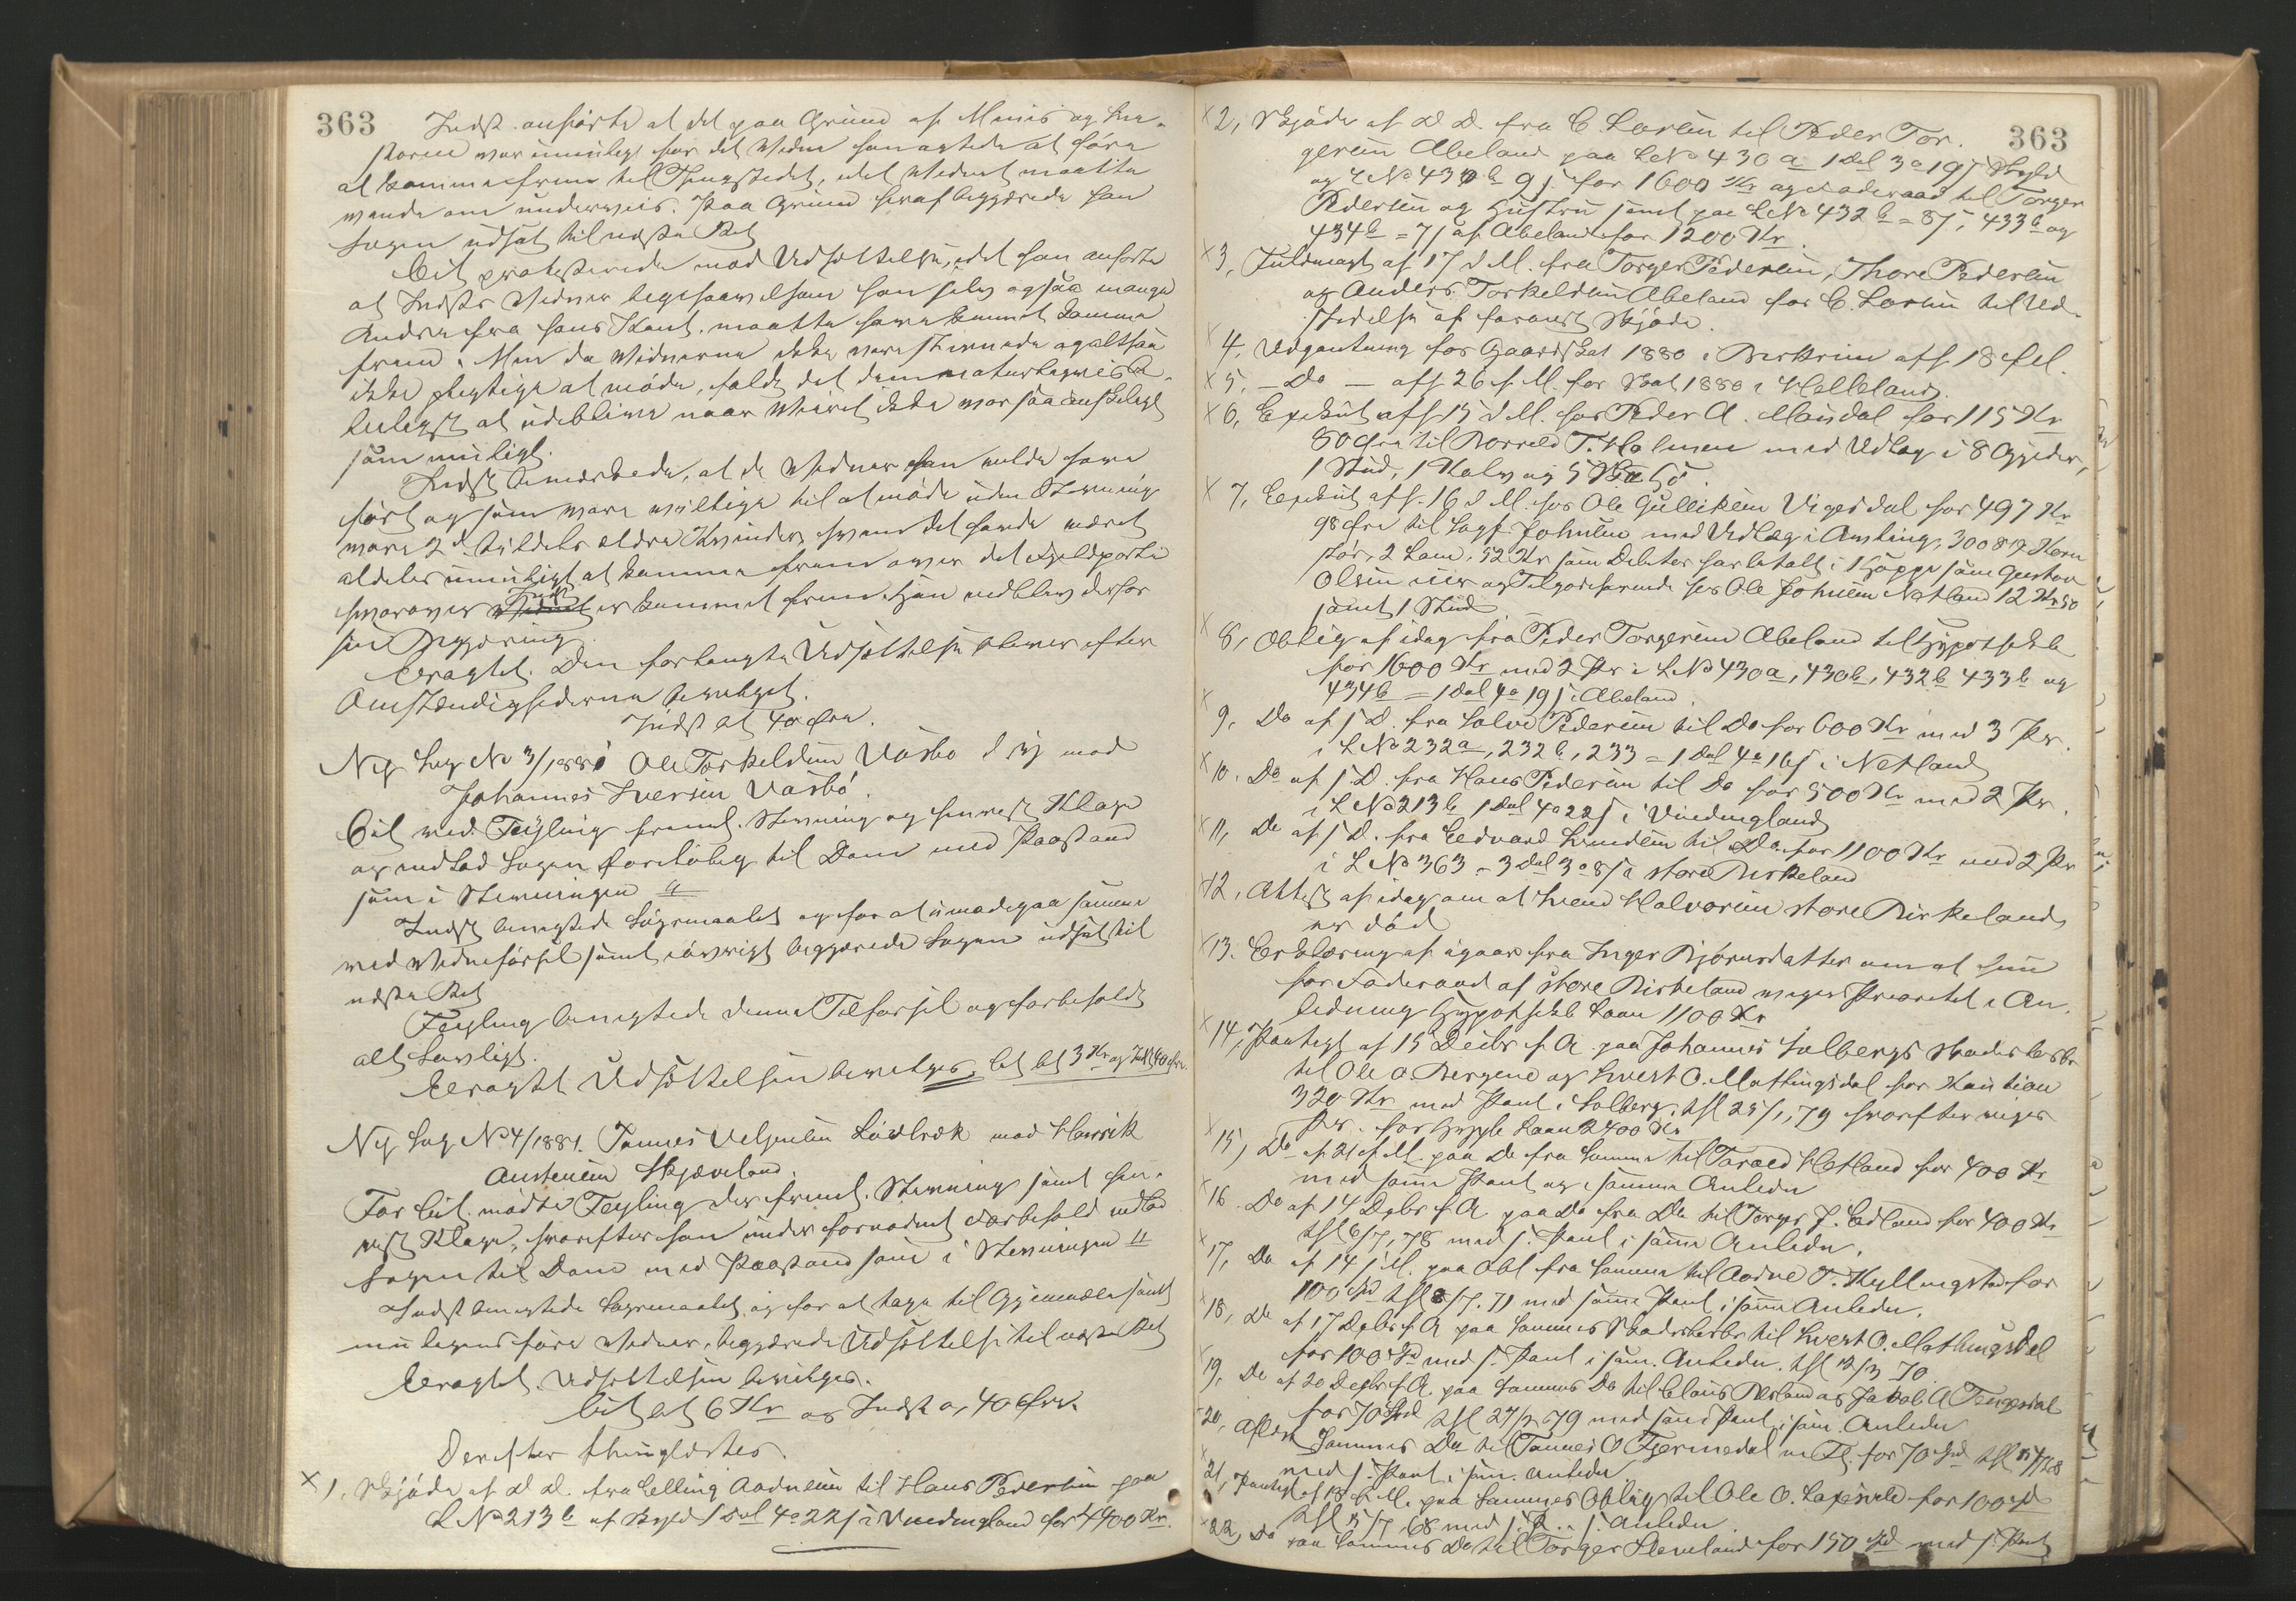 363
Indst. anførte at det paa Grund af Uveir og Sne-
storm var umuligt for det Vidne han agtede at føre
at komme frem til Thingstedet, idet Vidnet maatte
vende om underveis. Paa Grund heraf begjærede han
Sagen udsat til næste Ret
Cit. protesterede mod Udsættelse, idet han anførte
at Indsts Vidner ligesaavelsom han selv og saa mange
Andre fra hans Kant, maatte have kunnet komme
frem. Men da Vidnerne ikke vare stevnede og altsaa
ikke pligtige at møde, faldt det dem naturligvis be-
leiligst at udeblive naar Veiret ikke var saa
som muligt.
Indst bemærkede, at de Vidner han vilde have
ført og som vare villige til at møde uden Stevning
vare 2de tildels ældre Kvinder, hvem det havde været
aldeles umuligt at komme frem over det
hvorover Indst er kommet frem. Han vedblev derfor
sin Begjæring
Eragtet. Den forlangte Udsættelse bliver efter
Omstændighederne bevilget.
Indst bet 40 Øre.
Ny Sag No 3/1881 Ole Torkeldsen Vasbø mod
Johannes Iversen Vasbø.
Cit ved Feyling freml. Stevning og henvist Klage
og indlod Sagen foreløbig til Dom med Paastand
som i Stevningen
Indst benegtede Søgsmaalet og for at imødegaa samme
med Vidneførsel samt iøvrigt begjærede Sagen udsat til
næste Ret
Feyling benegtede denne Tilførsel og forbeholdt
alt Lovligt.
Eragtet Udsættelsen bevilges. Cit bet 3 Kr og Indst 40 Øre.
Ny Sag No 4/1881. Tønnes Veljesen Løvbræk mod Henrik
Austensen Skjæveland.
For Cit. mødte Feyling der freml. Stevning samt hen-
vist Klage, hvorefter han under fornødent Forbehold indlod
Sagen til Dom med Paastand som i Stevningen
Indst benegtede Søgsmaalet og for at tage til Gjenmæle samt
muligens føre Vidner, begjærede Udsættelse til næste Ret
Eragtet. Udsættelsen bevilges.
Cit bet 6 Kr og Indst 40 Øre.
Derefter thinglæstes.
1, Skjøde af d. D. fra Elling Aadnesen til Hans Pedersen paa
L No 213b af Skyld 1 Dal 4o 22 s i Vindingland for 4400 Kr.
363
2, Skjøde af d. D. fra C. Larsen til Peder Tor-
gersen Abeland paa L No 430a 1 Dal 3o 19 s Skyld
og L No 430b 9 s. for 1600 Kr og Føderaad til Torger
Pedersen og Hustru samt paa L No 432b = 8 s, 433b og
434b = 7 s af Abeland for 1200 Kr.
3, Fuldmagt af 17 d M. fra Torger Pedersen, Thore Pedersen
og Anders Torkeldsen Abeland for C. Larsen til Ud-
stedelse af foranst Skjøde.
4, Udpantning for Gaardskat 1880 i Birkrem afh. 18 f.
5. - Do - afh 26 f. M. for Skat 1880 i Helleland.
6, Exekut afh. 15 d M. hos Peder A. Mæsdal for 115 Kr
80 Øre til Borrild T. Holmen med Udlæg i 8 Gjeder,
1 Stud, 1 Kalv og 5
7, Exekut afh. 16 d M. hos Ole Gulliksen Vigesdal for 497 Kr
98 Øre til Johnsen med Udlæg i 300 Korn
2 Lam, 52 Kr som Debitor har betalt i som Gustav
Olsen og Tilgodehavende hos Ole Johnsen Netland 12 Kr 50
samt 1 Stud
8, Oblig af idag fra Peder Torgersen Abeland til Hypothekb
for 1600 Kr med 2 Pr i L No 430a, 430b, 432b 433b og
434b = 1 Dal 4o 19 s i Abeland.
9, Do af s. D. fra Salve Pedersen til Do for 600 Kr med 3 Pr.
i L No 232a, 232b, 233 = 1 Dal 4o 16 s i Netland
10. Do af s. D. fra Hans Pedersen til Do for 500 Kr med 2 Pr
i L No 213b 1 Dal 4o 22 s i Vindingland
11, Do af s. D. fra Edvard Svendsen til Do for 1100 Kr med 2 Pr
i L No 363 = 3 Dal 3o 8 s i store Birkeland
12, Attest af idag om at Svend Halvorsen store Birkeland
er død
13. Erklæring af igaar fra Inger Bjørnsdatter om at hun
for Føderaad af store Birkeland viger Prioritet i An-
ledning Hypothekb Laan 1100 Kr
14, af 15 Decbr f. A. paa Johannes Solbergs Skadesbrev
til Ole O. Bergene og Sivert O. Mattingsdal for Kaution
320 Kr med Pant i Solberg, thl 25/1, 79 hvorefter viges
Pr. for Hypb Laan 2400 Kr
15, Do af 21 f. M. paa Do fra Samme til Tarald Hetland for 400 Kr
med samme Pant og i samme Anledn
16. Do af 14 Dcbr f. A. paa Do fra Do til Torger J. Edland for 400 Kr
thl 6/7, 78 med s. Pant i samme Anledn.
17, Do af 14 f. M. paa Obl fra Samme til Aadne T. Kyllingstad for
100 Spd thl 8/7. 71 med samme Pant i samme Anledn.
18, Do af 17 Dcbr f. A. paa Sammes Skadesbrev til Sivert O. Mattingsdal
for 100 Spd med s. Pant i sam. Anledn. thl 12/3 70
19, Do af 20 Decbr f. A. paa Sammes Do til Claus Birkeland og Jakob A Tengesdal
for 70 Spd thl 27/2 79 med samme Pant i sam. Anledn
20, Sammes Do til Tønnes O Fjermedal for 70 Spd
med s. Pant i sam. Anledn
21, af 18 f. M. paa Sammes Oblig til Ole O. for 100 Spd
68 med s. P. i s. Anledn
22, Do paa Sammes Do til Torger Steneland for 150 Spd med s. Pant